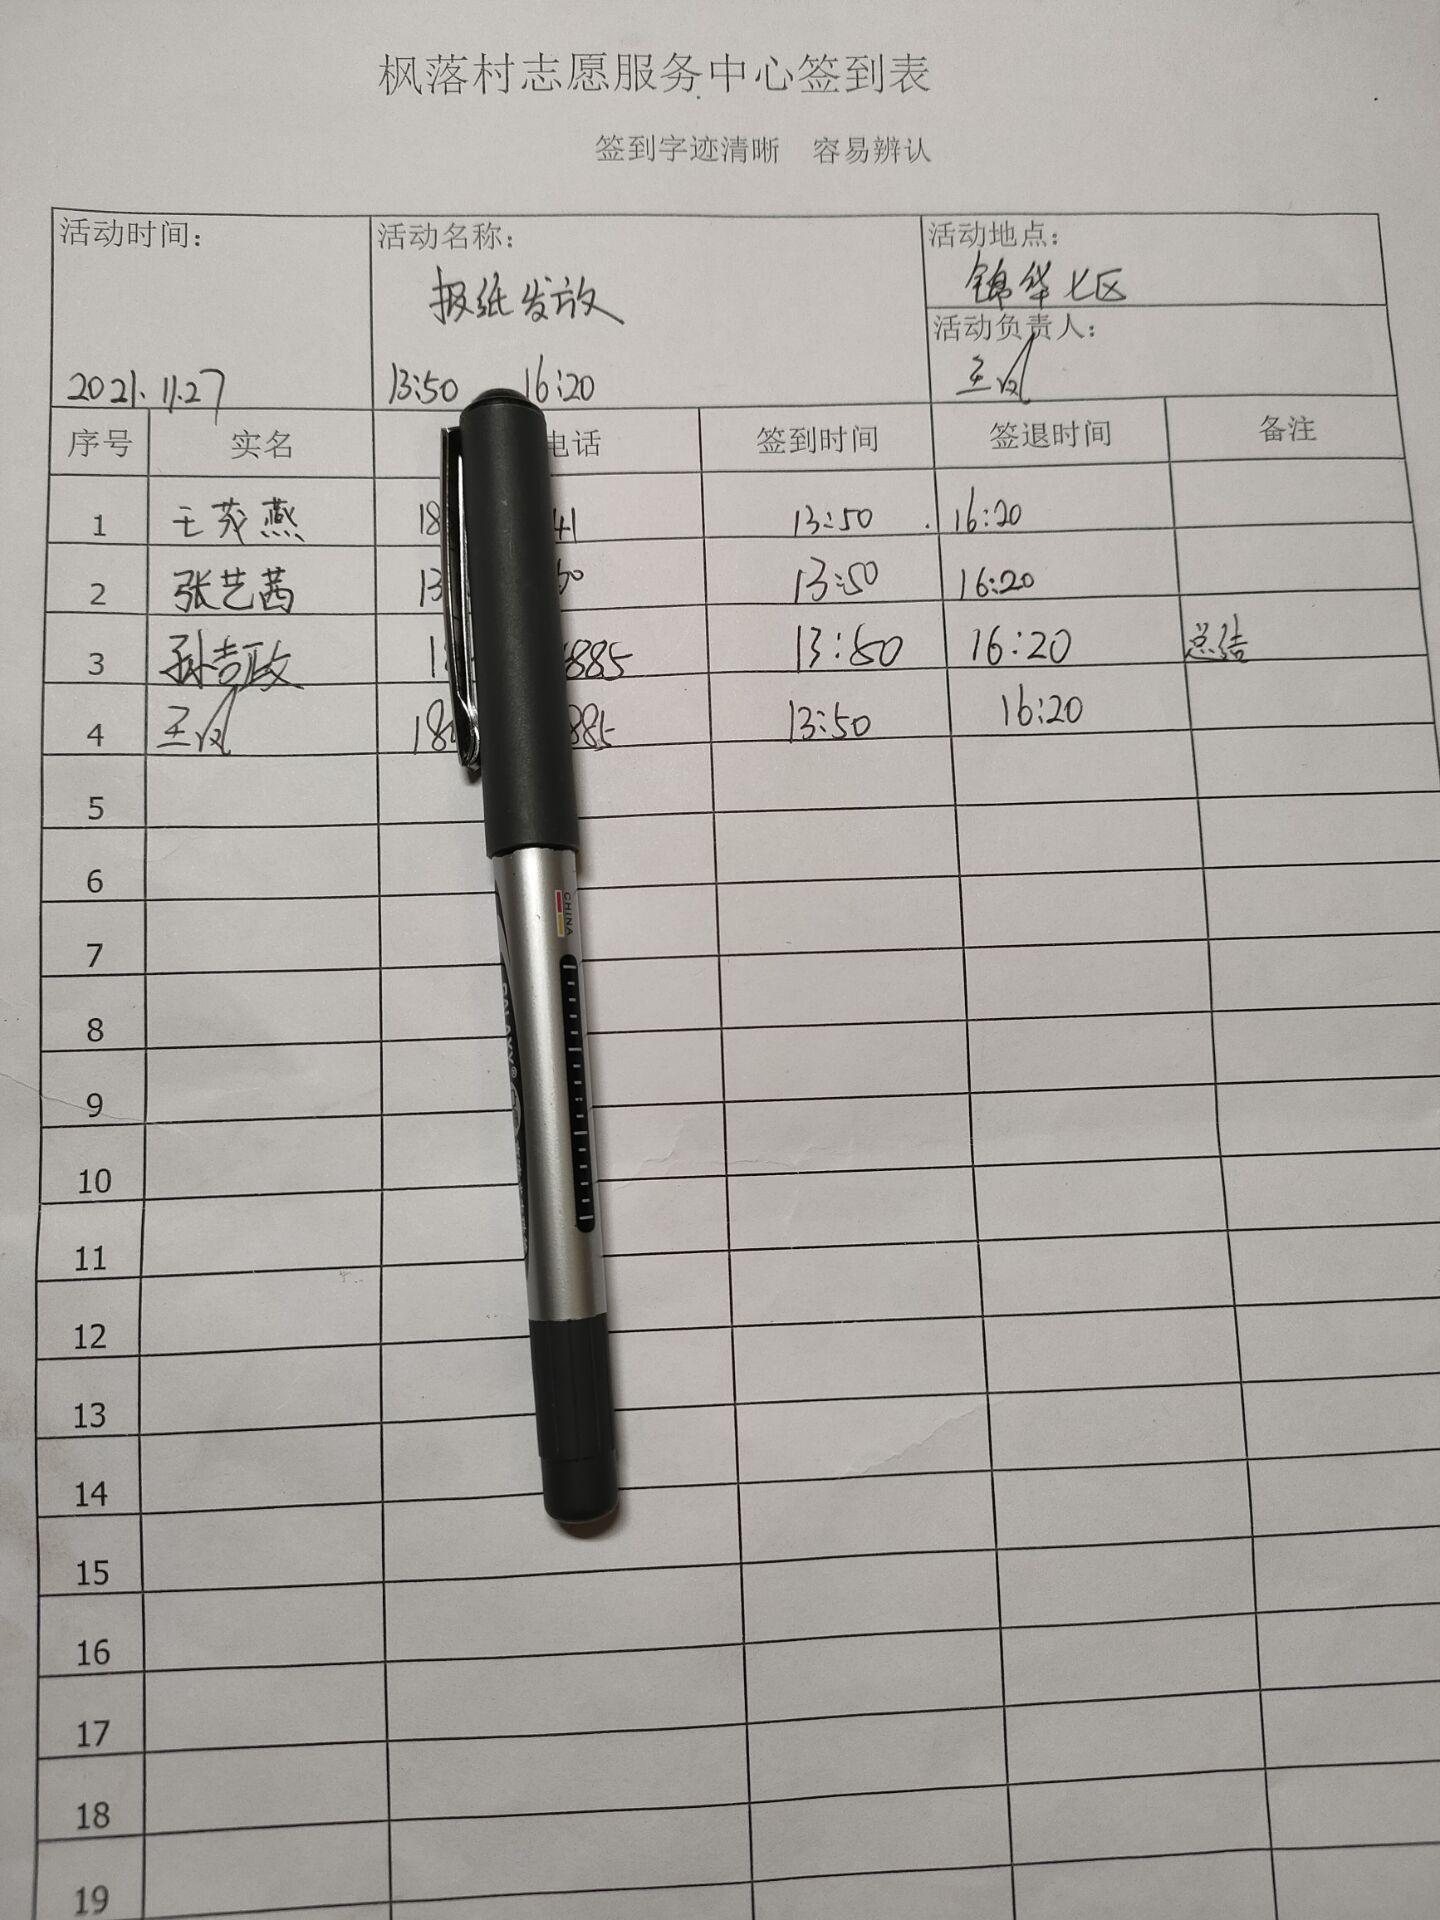 枫落村志愿服务中心签到表
签到字迹清晰 容易辨认
活动时间： 活动名称： 活动地点：
报纸发放 锦华七区
活动负责人：
2021.11.27 13:50 16:20
序号 实名 电话 签到时间 签退时间 备注
1 王茂燕 18 41 13:50 16:20
2 张艺茜 13 50 13:50 16:20
3 孙吉政 18 885 13:50 16:20 总结
4 18 885 13:50 16:20
5
6
7
8
9
10
11
12
13
14
15
16
17
18
19
CHINA